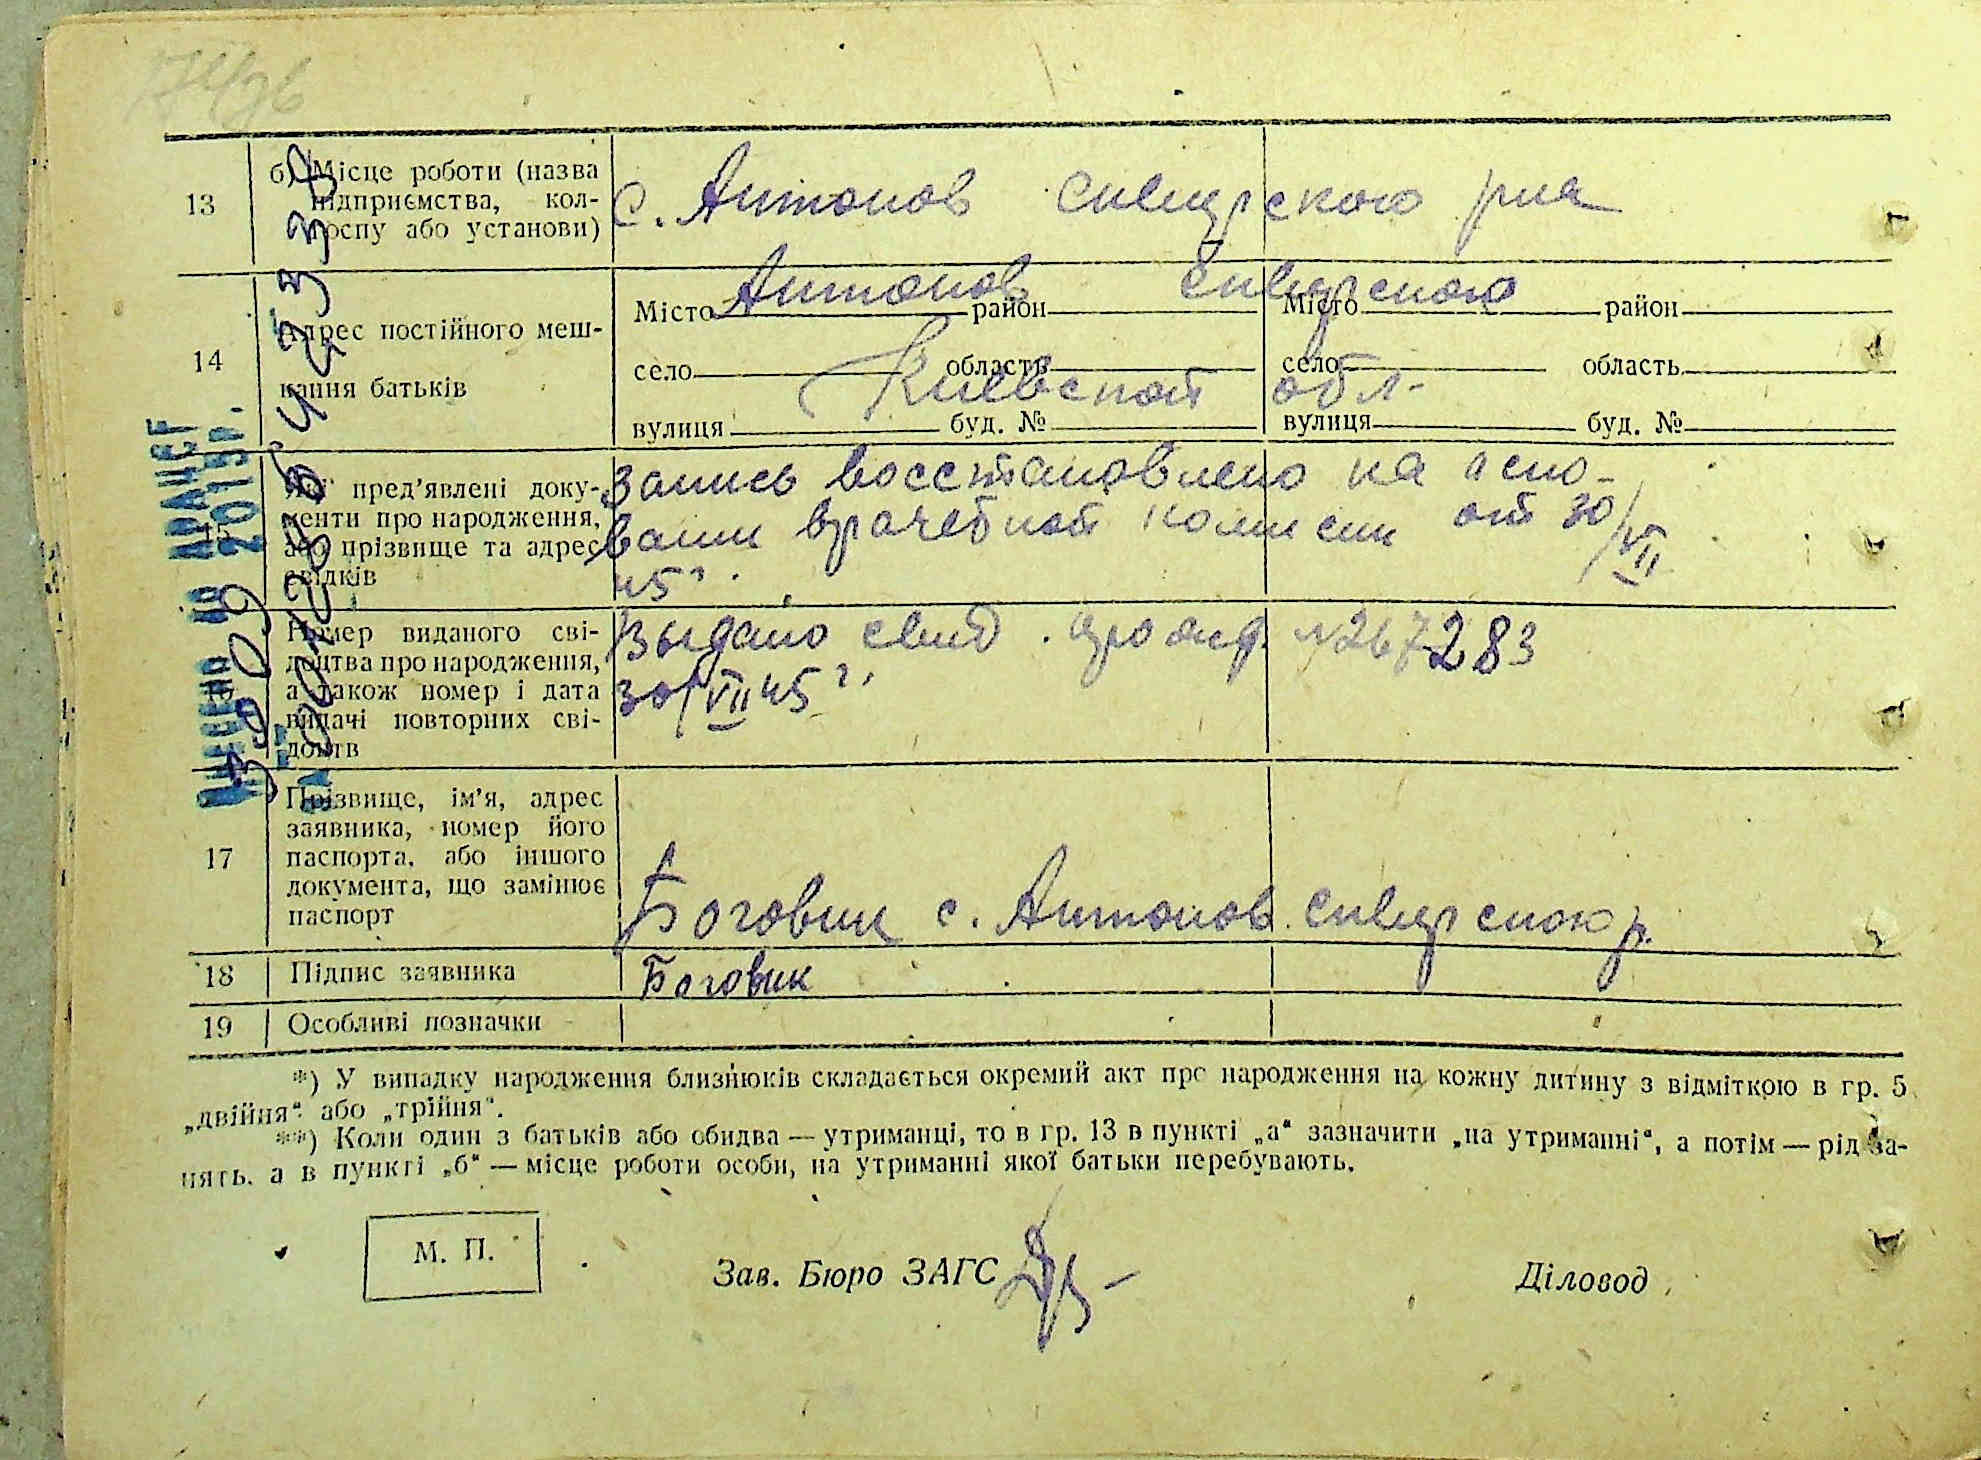 13
б) Місце роботи (назва
підприємства, кол-
госпу або установи)
с. Антонов Сквирского р-на
14
Адрес постійного меш-
кання батьків
Антонов Сквирского
Місто район Місто район
село область село область
Киевской обл.
вулиця буд. № вулиця буд. №
Які пред’явлені доку-
менти про народження,
або прізвище та адрес
свідків
запись восстановлено на осно-
вании врачебной комиссии от 30/VII
45 г.
Номер виданого сві-
доцтва про народження,
а також номер і дата
видачі повторних сві-
доцтв
Выдано свид. №267283
30/VII 45 г.
17
Прізвище, ім’я, адрес
заявника, номер його
паспорта, або іншого
документа, що замінює
паспорт
Боговик с. Антонов Сквирского р.
18 Підпис заявника
Боговик
19 Особливі позначки
*) У випадку народження близнюків складається окремий акт про народження на кожну дитину з відміткою в гр. 5
„двійня“ або „трійня“.
**) Коли один з батьків або обидва — утриманці, то в гр. 13 в пункті „а“ зазначити „на утриманні“, а потім — рід за-
нять, а в пункті „б“ — місце роботи особи, на утриманні якої батьки перебувають.
М. П.
Зав. Бюро ЗАГС
Діловод
ВНЕСЕНО ДО ДРАЦСГ
2015р.